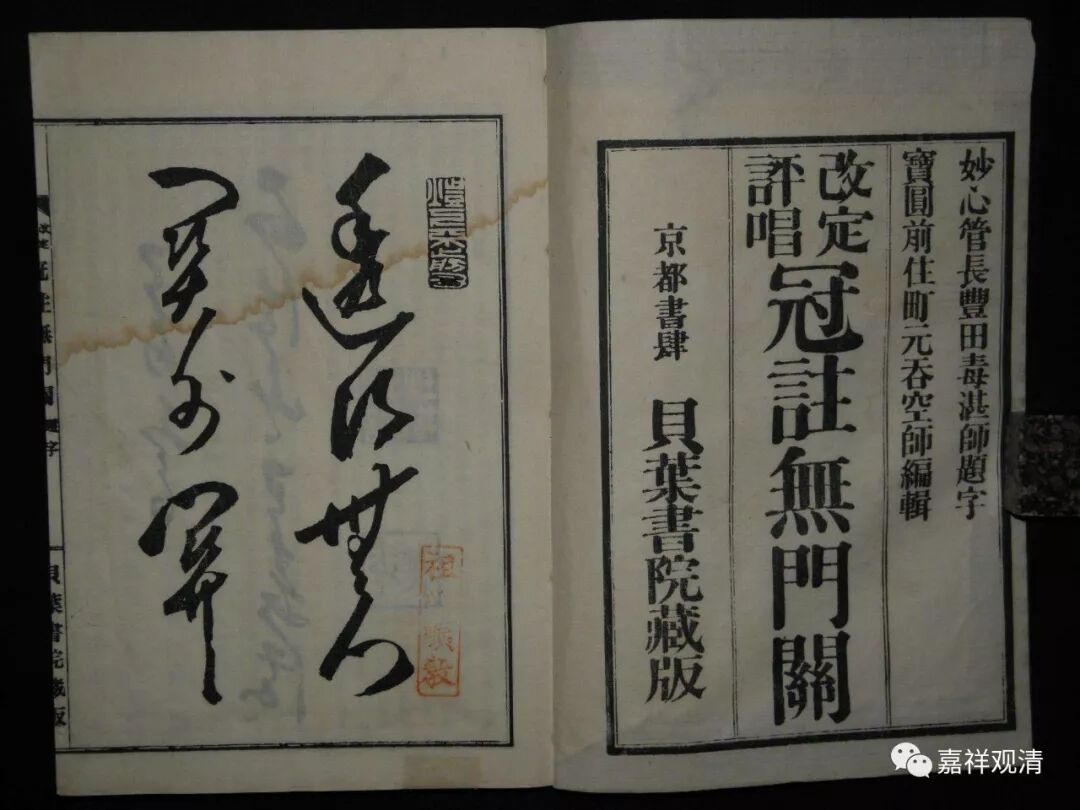 妙心管長豐田毒湛師題字
寶圓前住町元吞空師編輯
改定
評唱
冠註無門關
京都書肆 貝葉書院藏版
透得無門
冠註無門關 題字 一 貝葉書院藏版
嘉祥观清